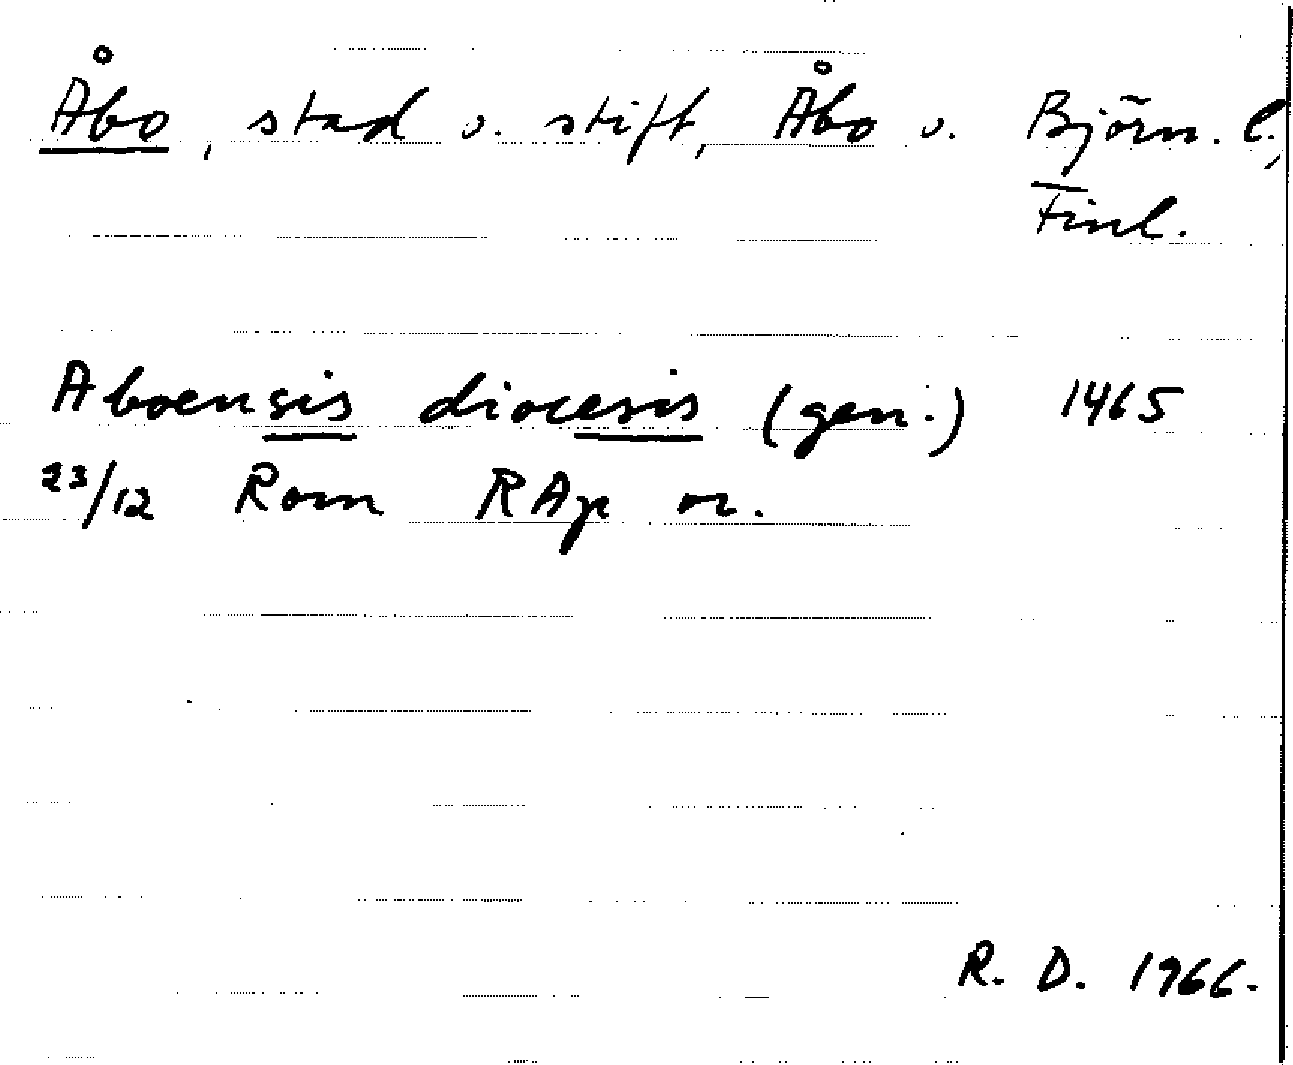 Åbo, stad o. stift, Åbo o. Björn. l.,
Finl.
Aboensis diocesis (gen.) 1465
23/12 Rom RAp or.
R. D. 1966.